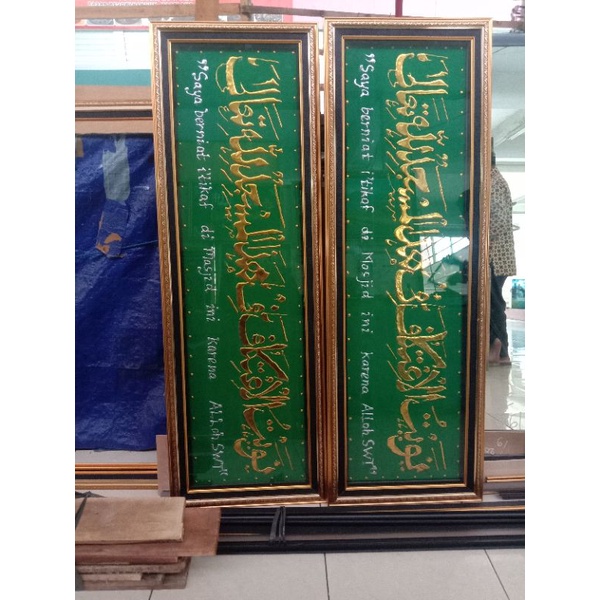 نويت الاعتكاف في هذا المسجد لله تعالى
"Saya berniat i'tikaf di Masjid ini karena ALLoh SWT"
نويت الاعتكاف في هذا المسجد لله تعالى
"Saya berniat i'tikaf di Masjid ini karena ALLoh SWT"